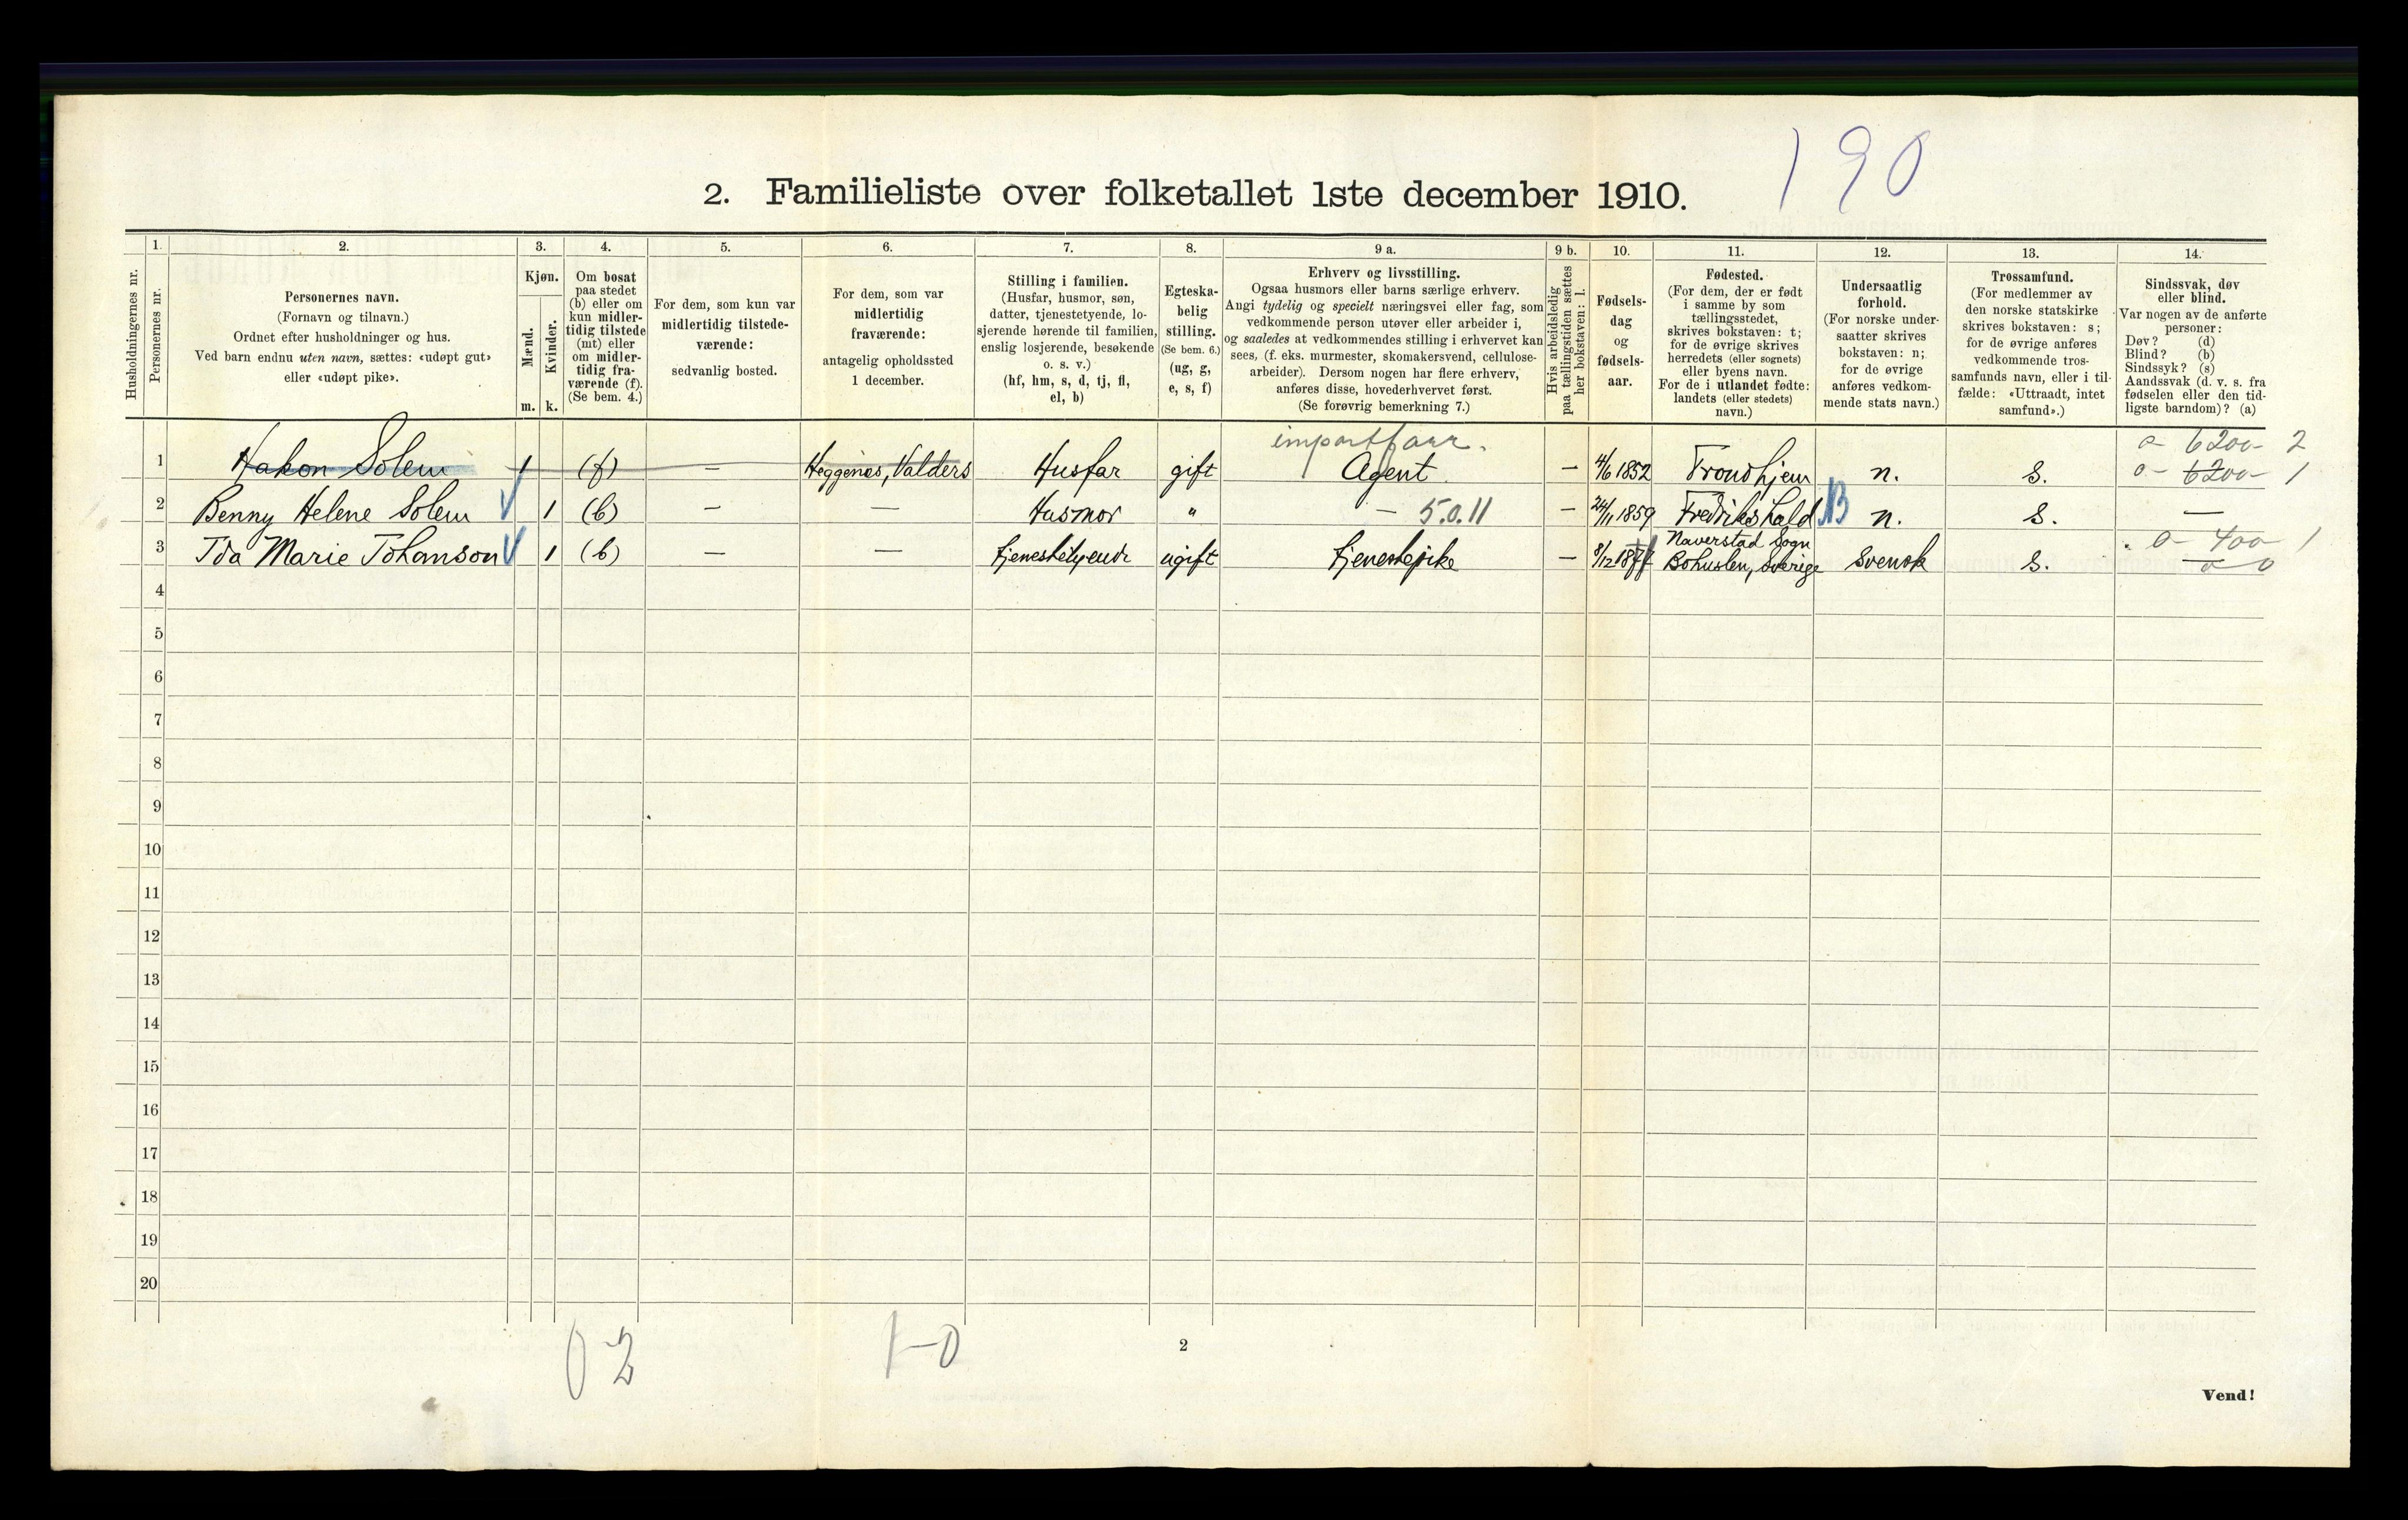 190
2. Familieliste over folketallet 1ste december 1910.
Husholdningernes nr.
1.
Personernes nr.
2.
Personernes navn.
(Fornavn og tilnavn.)
Ordnet efter husholdninger og hus.
Ved barn endnu uten navn, sættes: «udøpt gut»
eller «udøpt pike».
3.
Kjøn.
Mænd.
Kvinder.
m. k.
4.
Om bosat
paa stedet
(b) eller om
kun midler-
tidig tilstede
(mt) eller
om midler-
tidig fra-
værende (f).
(Se bem. 4.)
5.
For dem, som kun var
midlertidig tilstede-
værende:
sedvanlig bosted.
6.
For dem, som var
midlertidig
fraværende:
antagelig opholdssted
1 december.
7.
Stilling i familien.
(Husfar, husmor, søn,
datter, tjenestetyende, lo-
sjerende hørende til familien,
enslig losjerende, besøkende
o. s. v.)
(hf, hm, s, d, tj, fl,
el, b)
8.
Egteska-
belig
stilling.
(Se bem. 6.)
(ug, g,
e, s, f)
9 a.
Erhverv og livsstilling.
Ogsaa husmors eller barns særlige erhverv.
Angi tydelig og specielt næringsvei eller fag, som
vedkommende person utøver eller arbeider i,
og saaledes at vedkommendes stilling i erhvervet kan
sees, (f. eks. murmester, skomakersvend, cellulose-
arbeider). Dersom nogen har flere erhverv,
anføres disse, hovederhvervet først.
(Se forøvrig bemerkning 7.)
9 b.
Hvis arbeidsledig
paa tællingstiden sættes
her bokstaven: l.
10.
Fødsels-
dag
og
fødsels-
aar.
11.
Fødested.
(For dem, der er født
i samme by som
tællingsstedet,
skrives bokstaven: t;
for de øvrige skrives
herredets (eller sognets)
eller byens navn.
For de i utlandet fødte:
landets (eller stedets)
navn.)
12.
Undersaatlig
forhold.
(For norske under-
saatter skrives
bokstaven: n;
for de øvrige
anføres vedkom-
mende stats navn.)
13.
Trossamfund.
(For medlemmer av
den norske statskirke
skrives bokstaven: s;
for de øvrige anføres
vedkommende tros-
samfunds navn, eller i til-
fælde: «Uttraadt, intet
samfund».)
14.
Sindssvak, døv
eller blind.
Var nogen av de anførte
personer:
Døv? (d)
Blind? (b)
Sindssyk? (s)
Aandssvak (d. v. s. fra
fødselen eller den tid-
ligste barndom)? (a)
importforr. 0- 6200- 2
1 Hakon Solem 1 (f) — Heggenes, Valders Husfar gift Agent — 4/6 1852 Trondhjem n. s. 0- 6200- 1
2 Benny Helene Solem 1 (b) — — Husmor " — 5.0.11 — 24/11 1859 Fredrikshald B n. s. —
Naverstad Sogn 0- 400- 1
3 Ida Marie Johanson 1 (b) — — tjenestetyende ugift tjenestepike — 8/12 1877 Bohuslen, Sverige Svensk s. — 0 0
4
5
6
7
8
9
10
11
12
13
14
15
16
17
18
19
20
0 2
1-0
2
Vend!